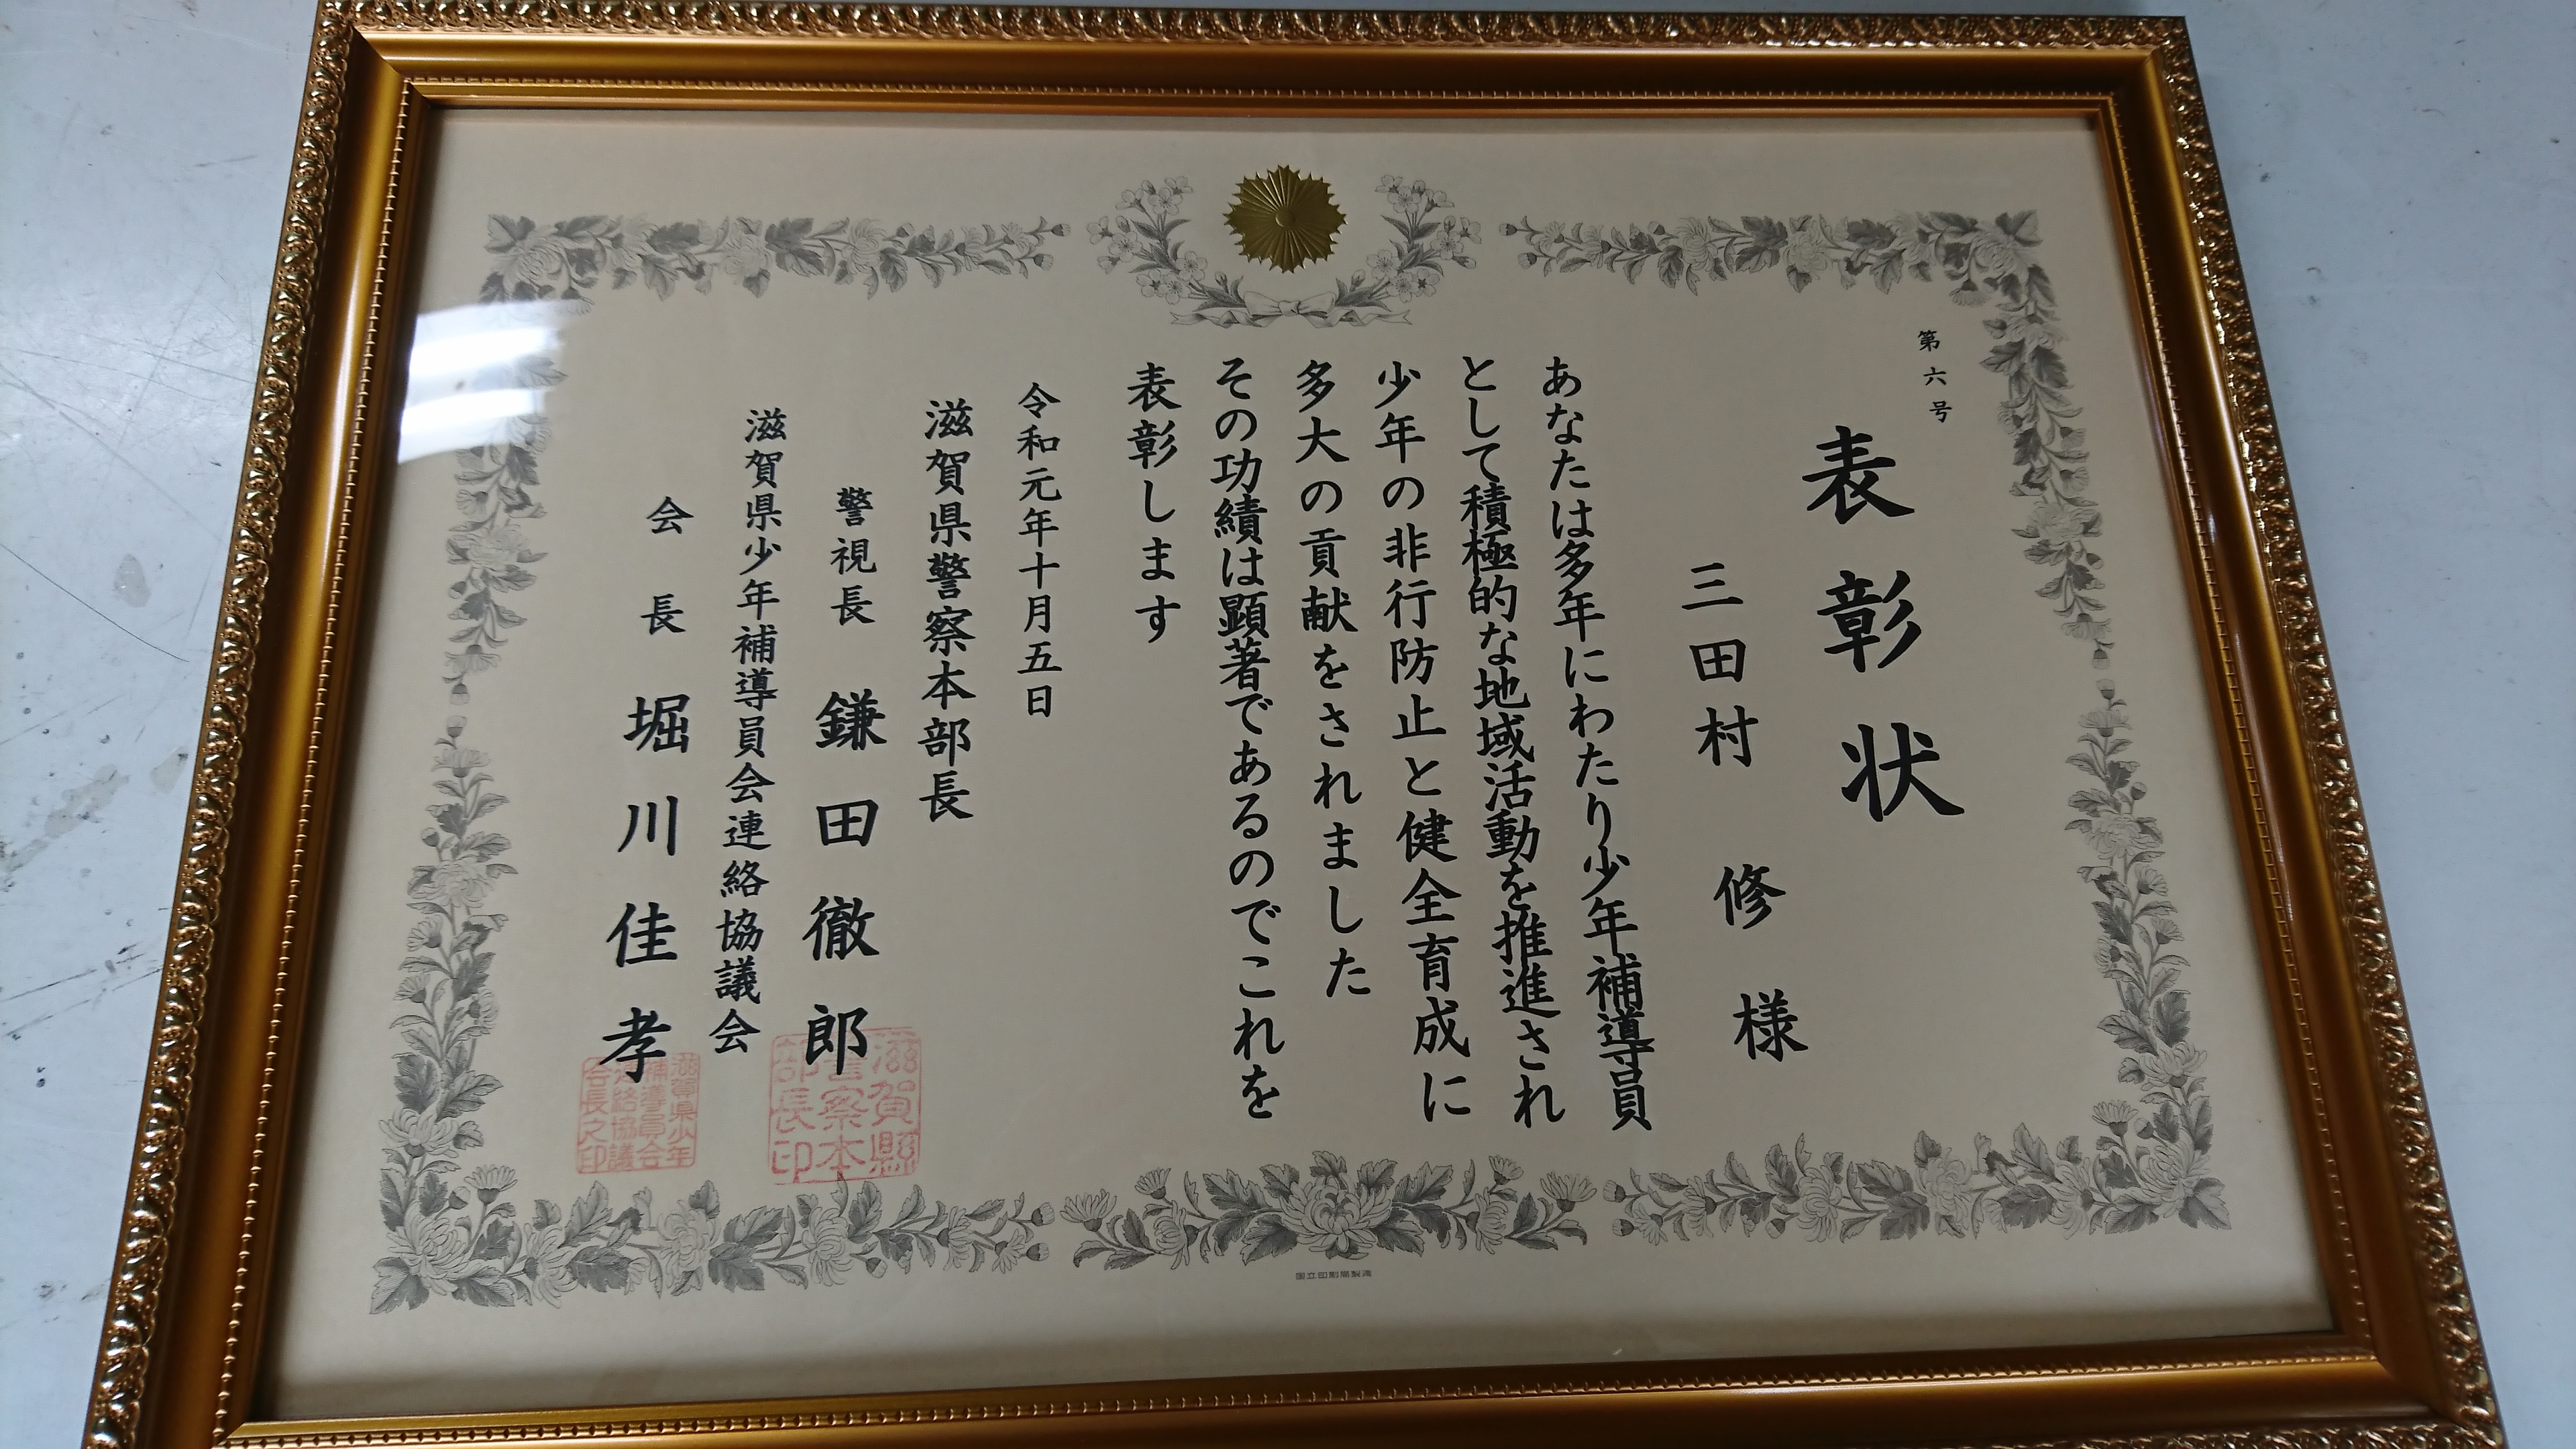 第六号
表彰状
三田村 修 様
あなたは多年にわたり少年補導員
として積極的な地域活動を推進され
少年の非行防止と健全育成に
多大の貢献をされました
その功績は顕著であるのでこれを
表彰します
令和元年十月五日
滋賀県警察本部長
警視長 鎌田徹郎
滋賀県警察本部長印
滋賀県少年補導員会連絡協議会
会長 堀川佳孝
滋賀県少年補導員会連絡協議会長之印
国立印刷局製造